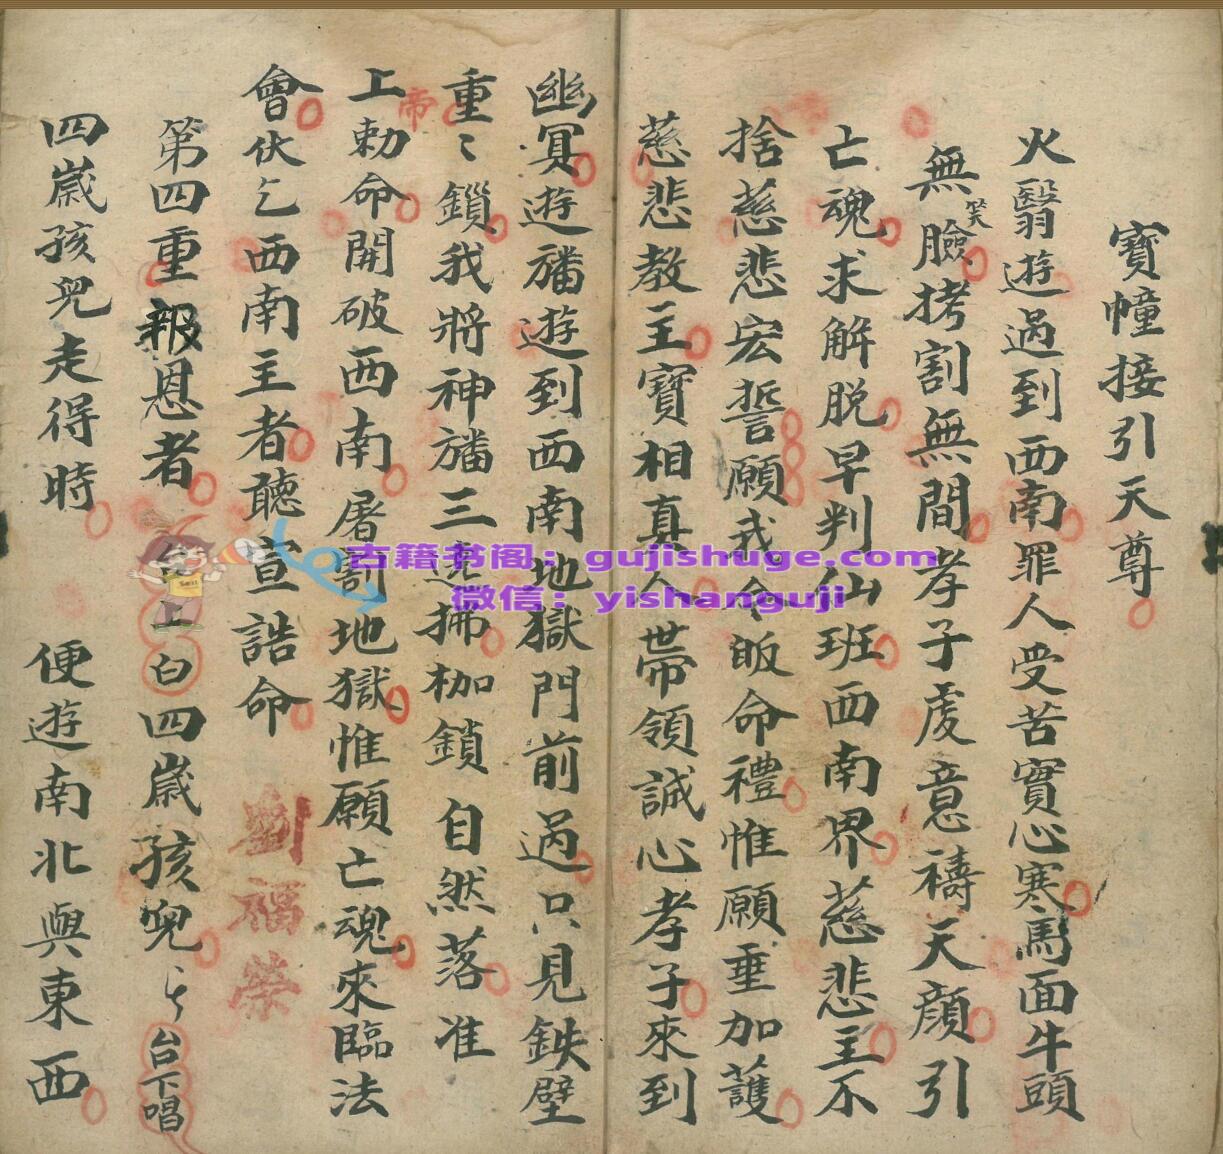 寳幢接引天尊
火翳遊過到西南罪人受苦實心寒馬面牛頭
無笑臉拷割無間孝子虔意禱天顔引
亡魂求解脱早判仙班西南界慈悲主不
捨慈悲宏誓願我今皈命禮惟願垂加護
慈悲教主寳相真人帶領誠心孝子來到
幽冥遊旛遊到西南地獄門前過只見鉄壁
重〻鎖我將神旛三遶拂枷鎖自然落准
上帝勅命開破西南屠割地獄惟願亡魂來臨法
會伏乞西南主者聽宣誥命
劉福榮
第四重報恩者 白四歲孩兒 台下唱
四歲孩兒走得時 便遊南北與東西
古籍书阁：gujishuge.com
微信：yishanguji